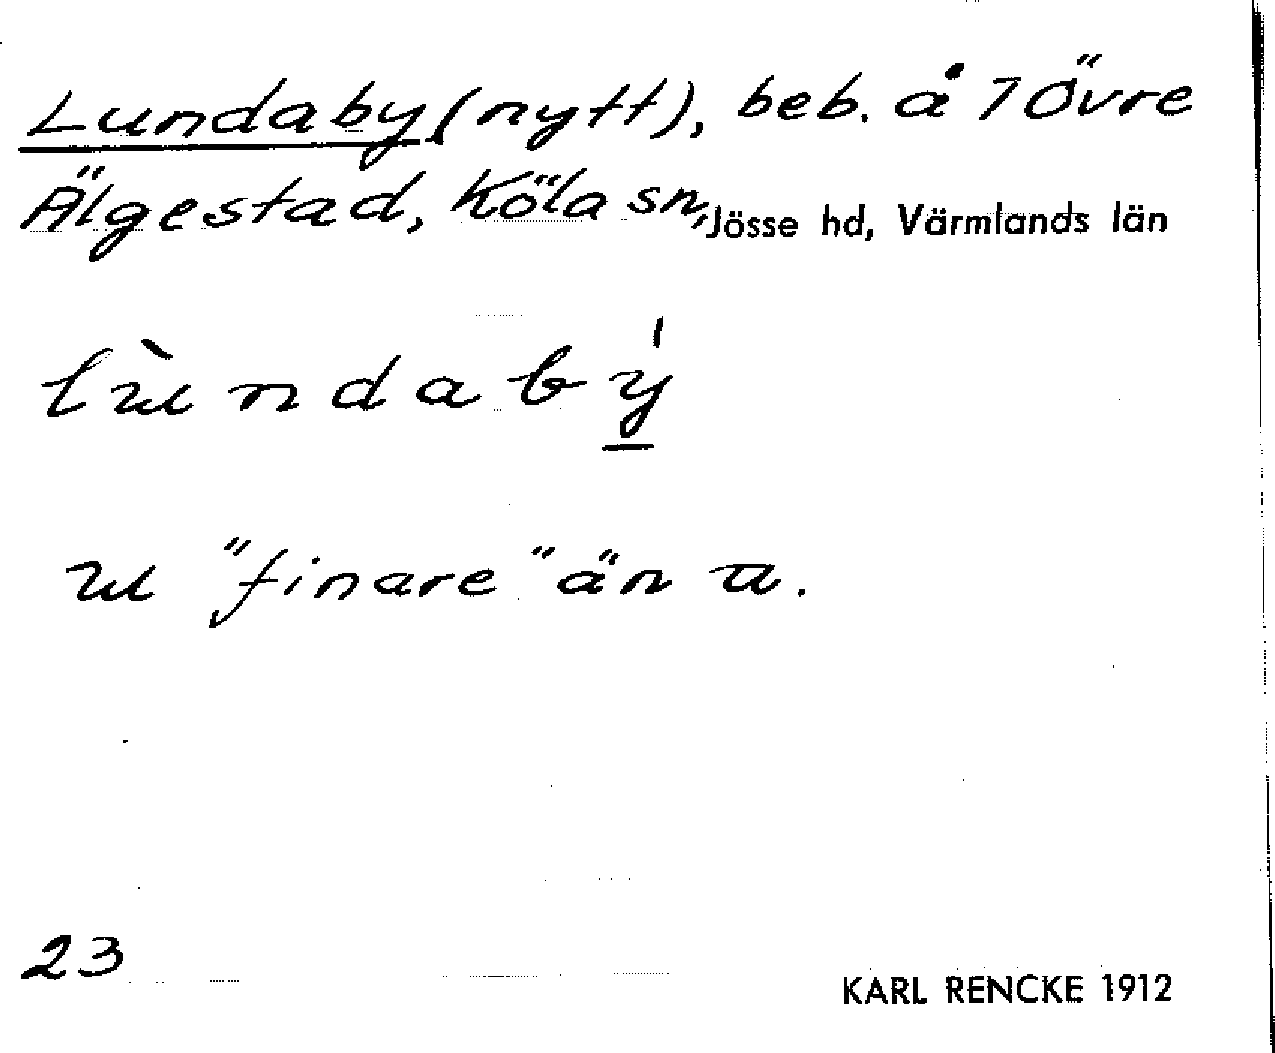 Lundaby (nytt), beb. å 7 Övre
Älgestad, Köla sn, Jösse hd, Värmlands län
lùndabý
u "finare" än a.
23
KARL RENCKE 1912